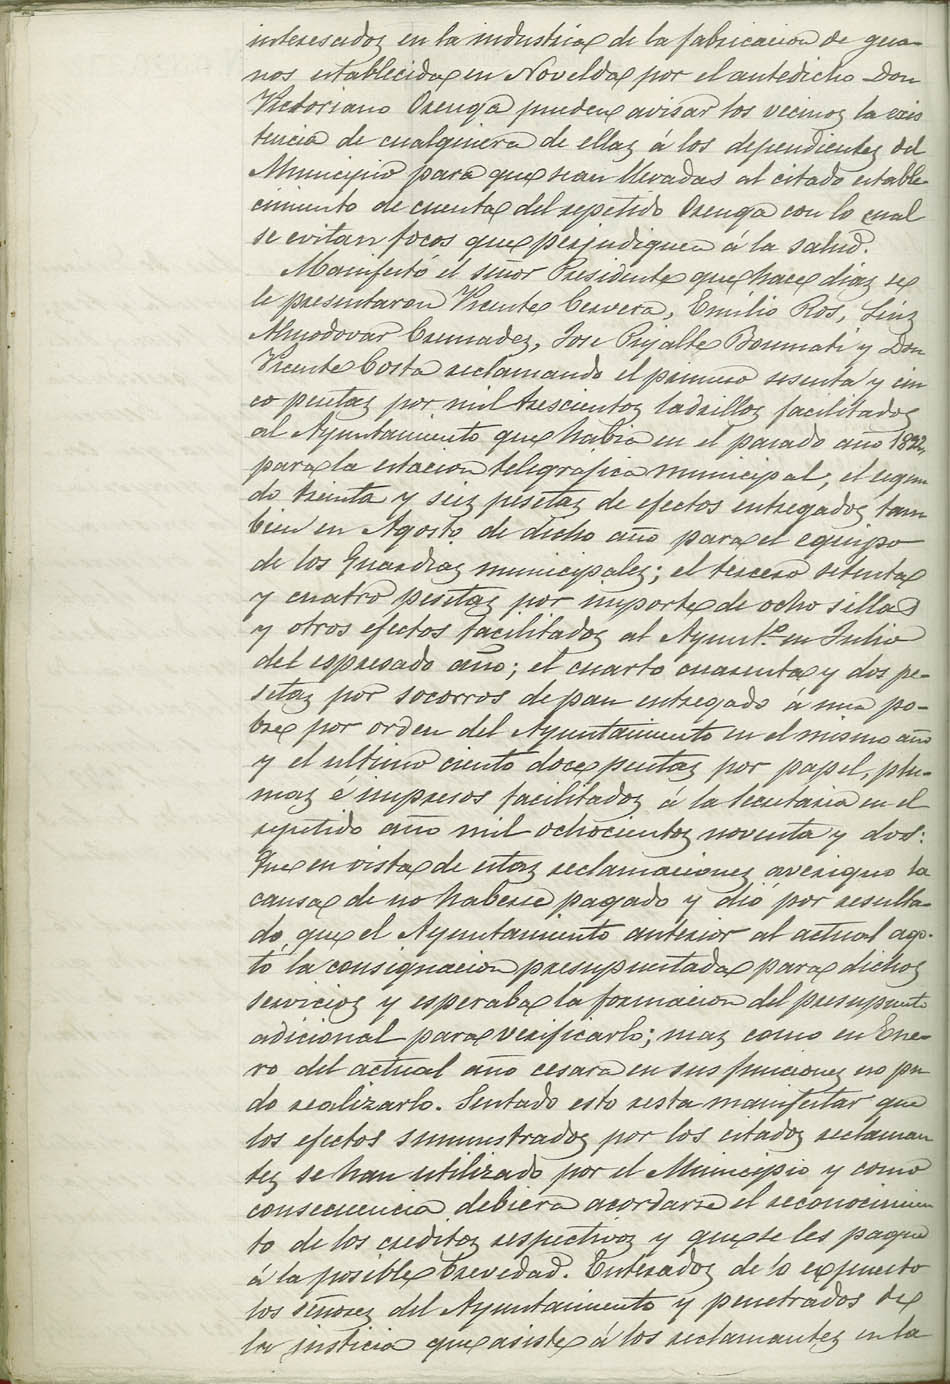 interesados en la industria de la fabricacion de gua-
nos establecida en Novelda por el antedicho Don
Victoriano Orenga pueden avisar los vecinos la exis
tencia de cualquiera de ellas á los dependientes del
Municipio para que sean llevadas al citado estable-
cimiento de cuenta del repetido Orenga con lo cual
se evitan focos que perjudiquen á la salud.
Manifestó el señor Presidente que hace dias se
le presentaron Vicente Cervera, Emilio Ros, Luis
Almodovar Cremades, Jose Pujalte Bonmati y Don
Vicente Costa reclamando el primero sesenta y cin
co pesetas por mil trescientos ladrillos facilitados
al Ayuntamiento que habia en el pasado año 1892,
para la estacion telegrafica municipal; el segun
do treinta y seis pesetas de efectos entregados tam
bien en Agosto de dicho año para el equipo
de los Guardias municipales; el tercero setenta
y cuatro pesetas por importe de ocho sillas
y otros efectos facilitados al Ayunt.º en Julio
del espresado año; el cuarto cuarenta y dos pe-
setas por socorros de pan entregado á una po-
bre por orden del Ayuntamiento en el mismo año
y el ultimo ciento doce pesetas por papel, plu-
mas é impresos facilitados á la Secretaria en el
repetido año mil ochocientos noventa y dos:
Que en vista de estas reclamaciones averiguo la
causa de no haberse pagado y dió por resulta-
do, que el Ayuntamiento anterior al actual ago-
tó la consignacion presupuestada para dichos
servicios y esperaba la formacion del presupuesto
adicional para verificarlo; mas como en Ene-
ro del actual año cesara en sus funciones no pu
do realizarlo. Sentado esto resta manifestar que
los efectos suministrados por los citados reclaman
tes se han utilizado por el Municipio y como
consecuencia debiera acordarse el reconocimien
to de los creditos respectivos y que se les pague
á la posible brevedad. Enterados de lo expuesto
los señores del Ayuntamiento y penetrados de
la justicia que asiste á los reclamantes en la